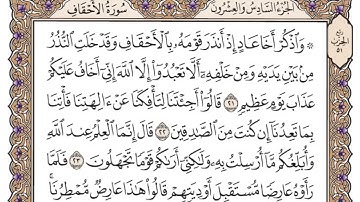 الجزء السادس والعشرون
سورة الأحقاف
۞ وَاذْكُرْ أَخَا عَادٍ إِذْ أَنذَرَ قَوْمَهُ بِالْأَحْقَافِ وَقَدْ خَلَتِ النُّذُرُ
مِن بَيْنِ يَدَيْهِ وَمِنْ خَلْفِهِ أَلَّا تَعْبُدُوا إِلَّا اللَّهَ إِنِّي أَخَافُ عَلَيْكُمْ
عَذَابَ يَوْمٍ عَظِيمٍ ٢١ قَالُوا أَجِئْتَنَا لِتَأْفِكَنَا عَنْ آلِهَتِنَا فَأْتِنَا
بِمَا تَعِدُنَا إِن كُنتَ مِنَ الصَّادِقِينَ ٢٢ قَالَ إِنَّمَا الْعِلْمُ عِندَ اللَّهِ
وَأُبَلِّغُكُم مَّا أُرْسِلْتُ بِهِ وَلَٰكِنِّي أَرَاكُمْ قَوْمًا تَجْهَلُونَ ٢٣ فَلَمَّا
رَأَوْهُ عَارِضًا مُّسْتَقْبِلَ أَوْدِيَتِهِمْ قَالُوا هَٰذَا عَارِضٌ مُّمْطِرُنَا
ربع
الحزب
٥١